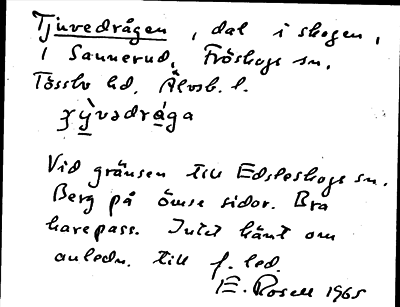 Tjuvedrågen, dal i skogen,
i Sannerud, Fröskogs sn.
Tössbo hd, Älvsb. l.
ɟỳvədrága
Vid gränsen till Edsleskogs sn.
Berg på ömse sidor. Bra
harepass. Intet känt om
anledn. till f. led.
E. Rosell 1965